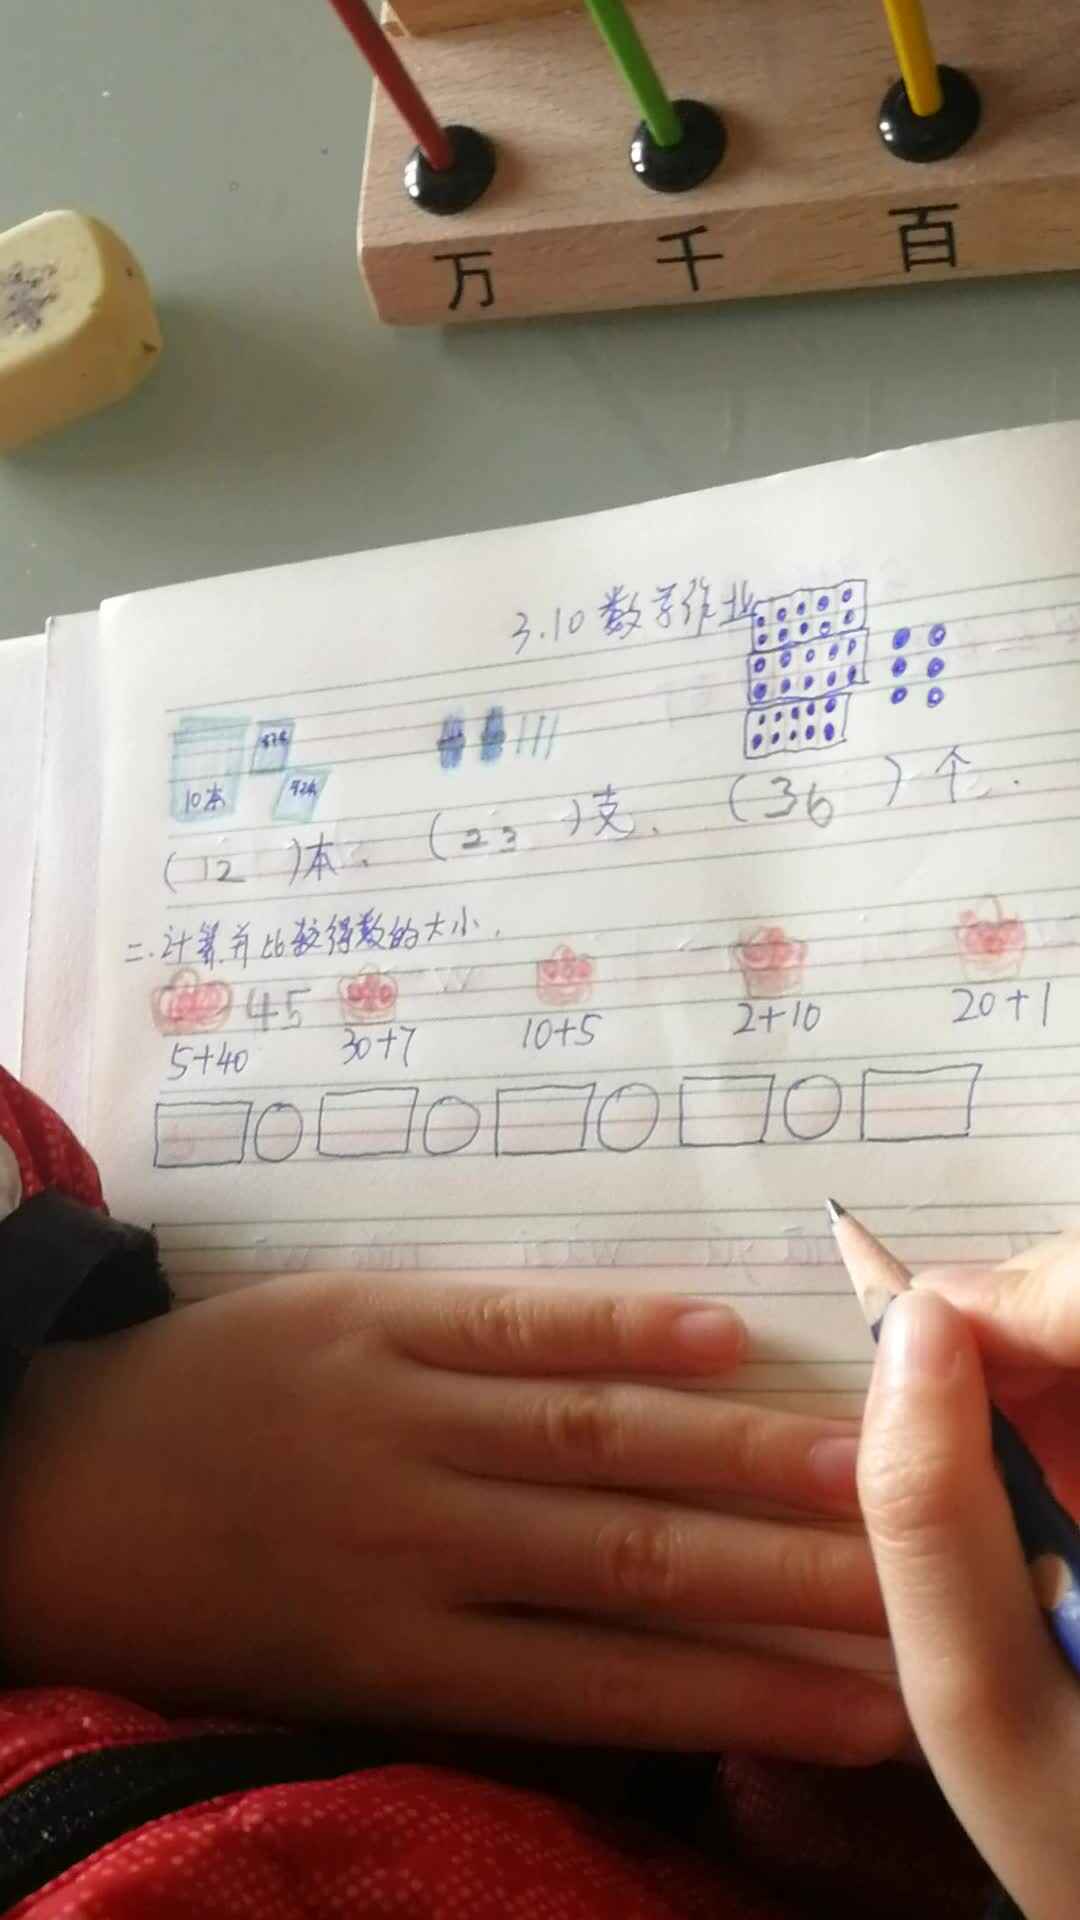 万 千 百
3.10 数学作业
10本
(12)本. (23)支. (36)个.
二.计算并比较得数的大小.
45
5+40 30+7 10+5 2+10 20+1